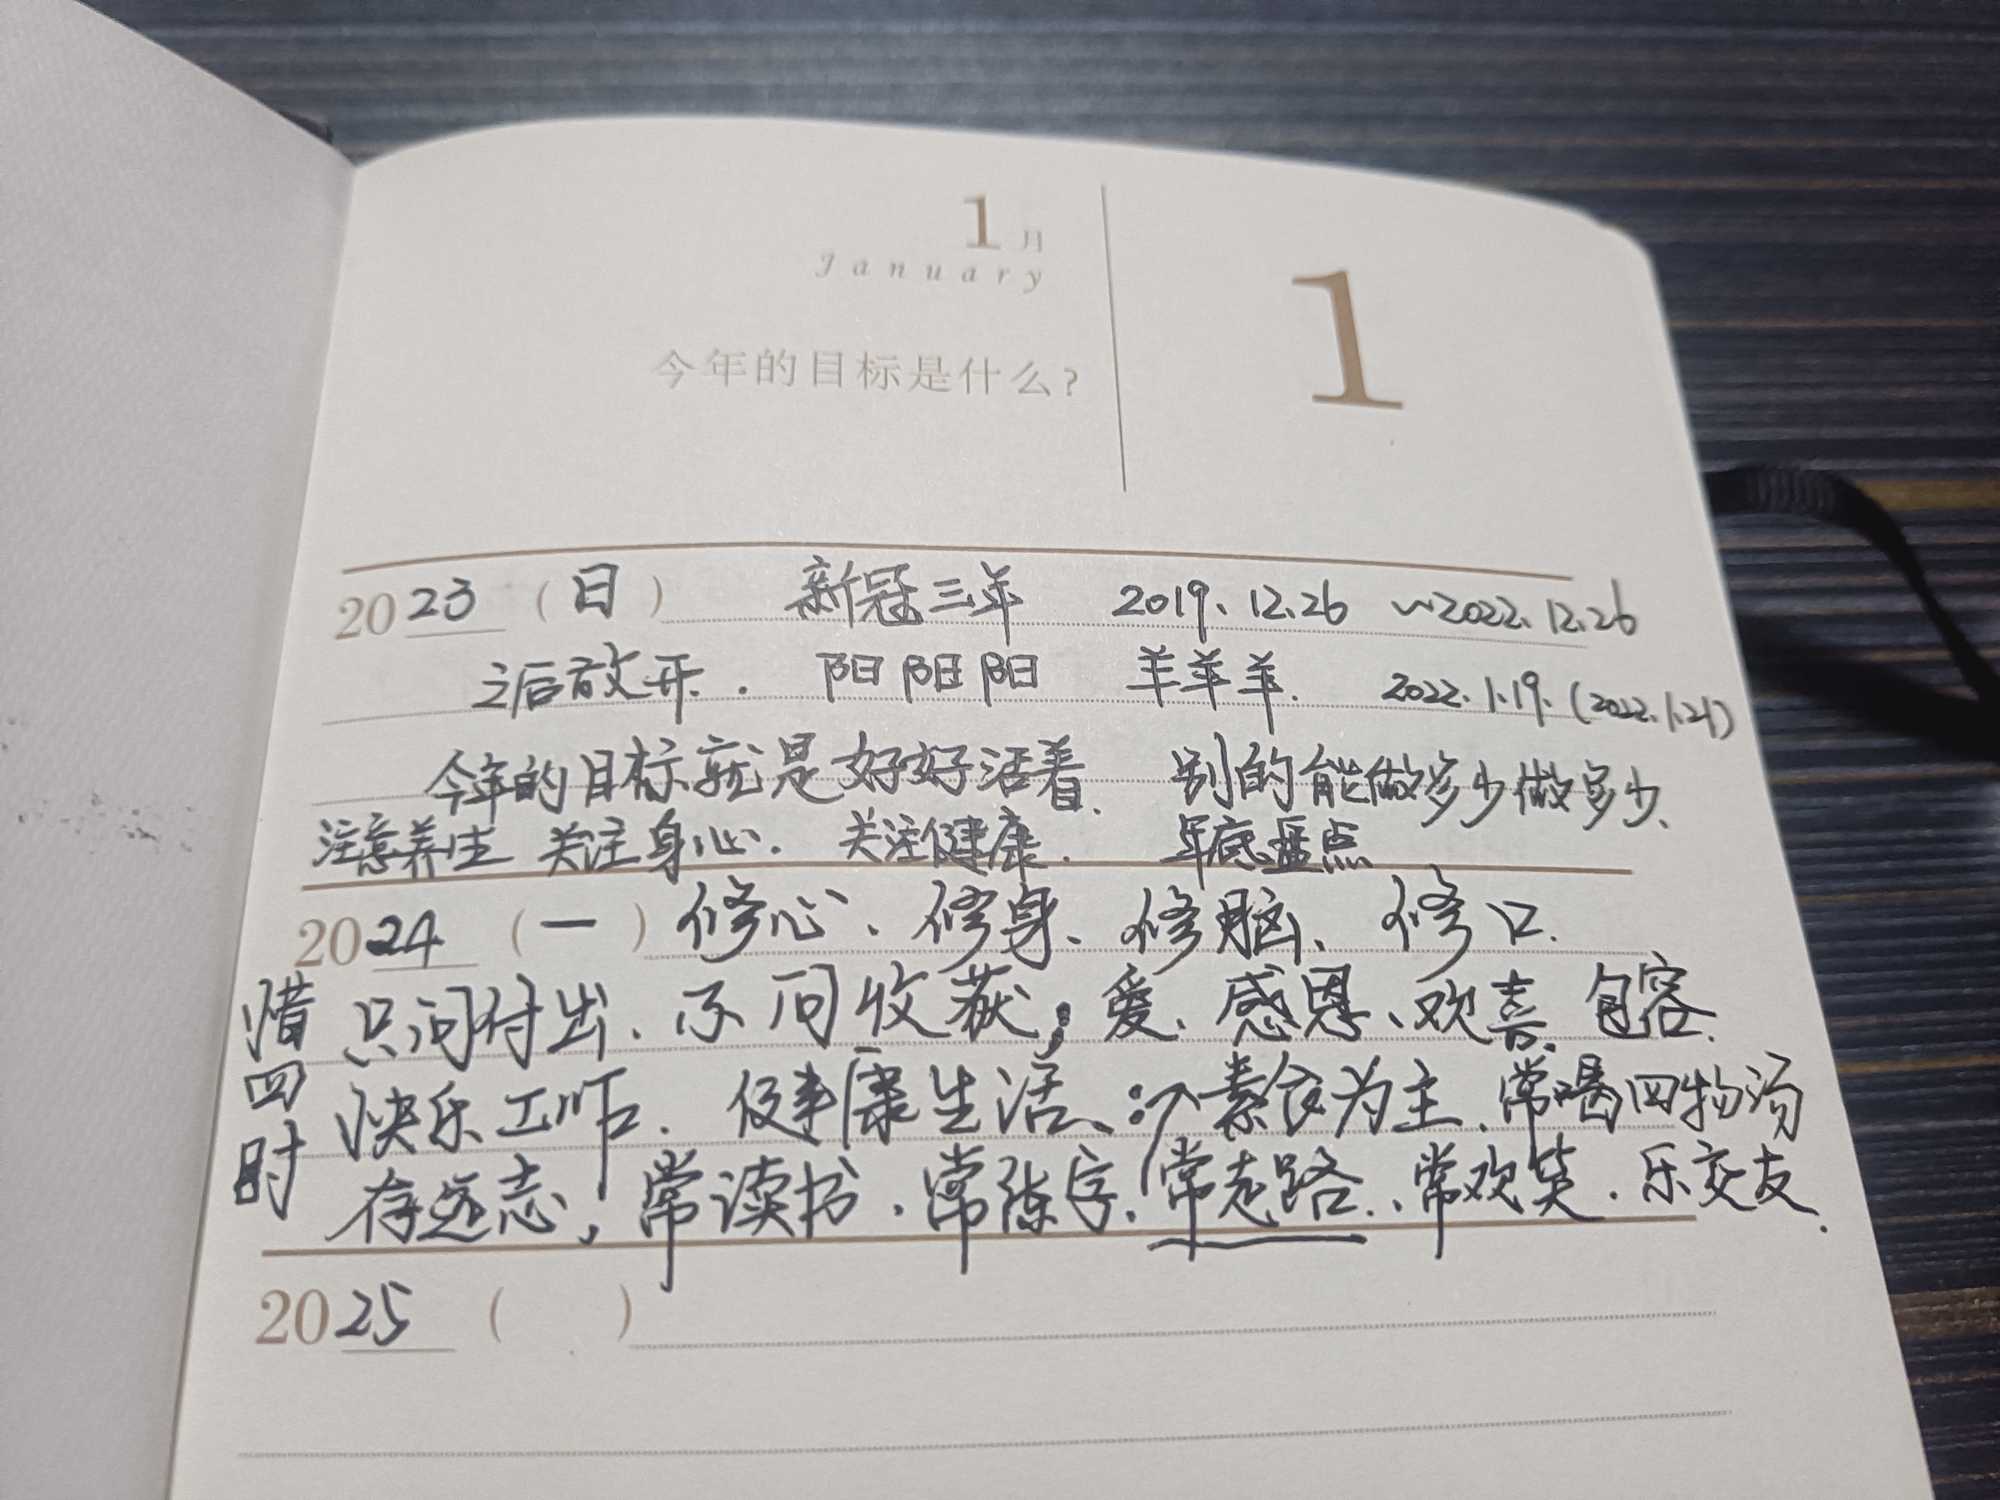 1月
January
今年的目标是什么?
1
2023（日） 新冠三年 2019.12.26 ~2022.12.26
之后放开. 阳阳阳 羊羊羊. 2022.1.19.(2022.1.21)
今年的目标就是好好活着. 别的能做多少做多少、
注意养生 关注身心. 关注健康. 年底盘点
2024（一）修心、修身、修脑、修口.
只问付出、不问收获；爱、感恩、欢喜、包容.
快乐工作. 健康生活、素食为主、常喝四物汤
存远志，常读书.常练字、常走路.、常欢笑.乐交友.
惜四时
2025（ ）